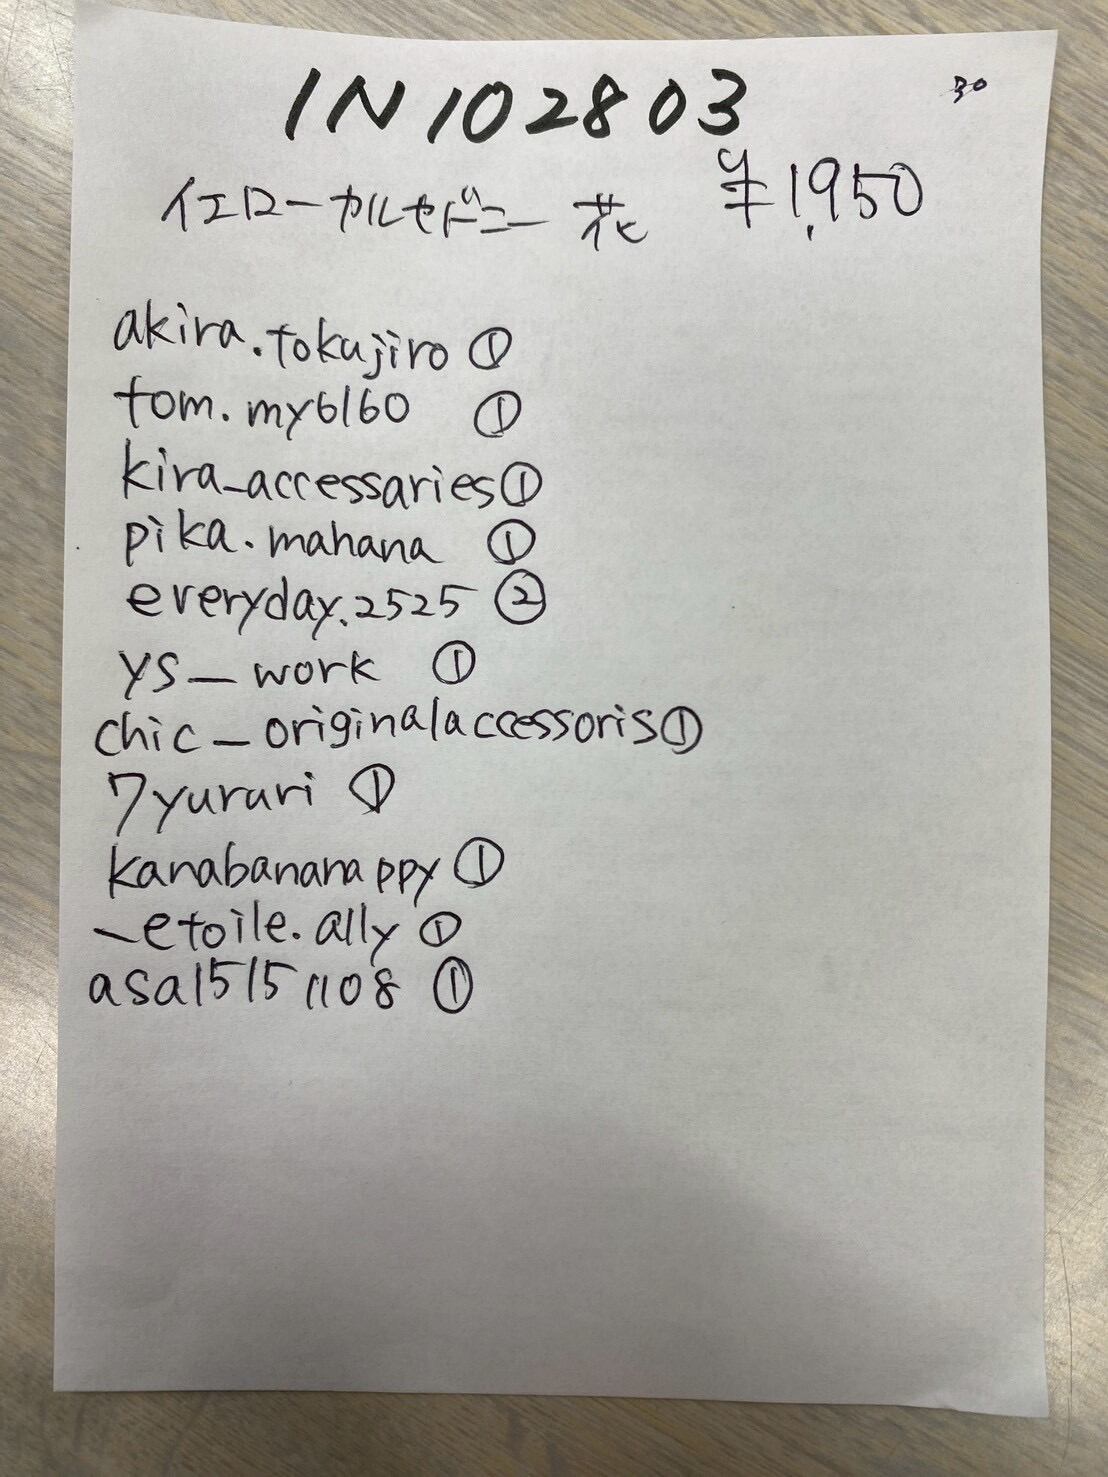 IN102803 30
イエローカルセドニー 花 ¥1,950
akira.tokujiro ①
tom.my6160 ①
kira_accessaries ①
pika.mahana ①
everyday.2525 ②
ys_work ①
chic_originalaccessoris ①
7yurari ①
kanabananappy ①
_etoile.ally ①
asa15151108 ①